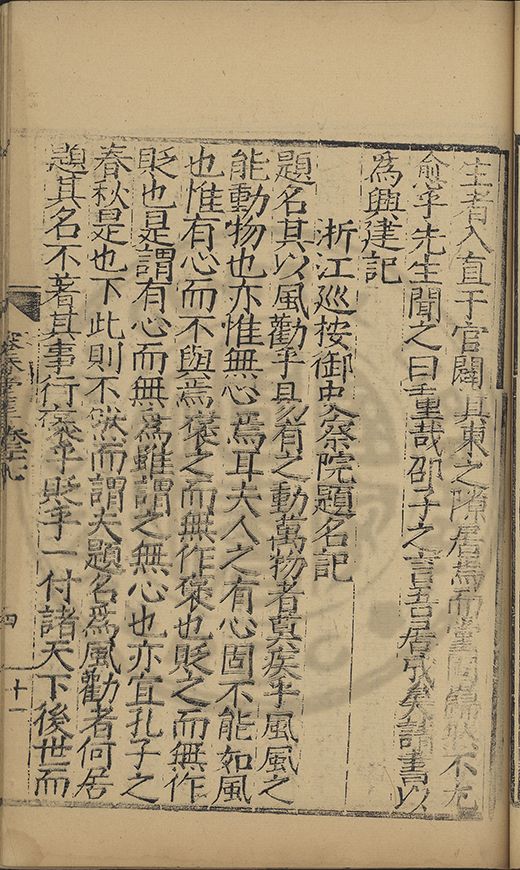 生者入直于官闢其東之隙居焉而堂不尤
愈乎先生聞之曰重哉邵子之言吾居成矣請書以
爲興建記
浙江巡按御史察院題名記
題名其以風勸乎易有之動萬物者莫疾乎風風之
能動物也亦惟無心焉耳夫人之有心固不能如風
也惟有心而不與焉襃之而無作襃也貶之而無作
貶也是謂有心而無爲雖謂之無心也亦宜孔子之
春秋是也下此則不然而謂夫題名爲風勸者何居
題其名不著其事行襃乎貶乎一付諸天下後世而
四
十一